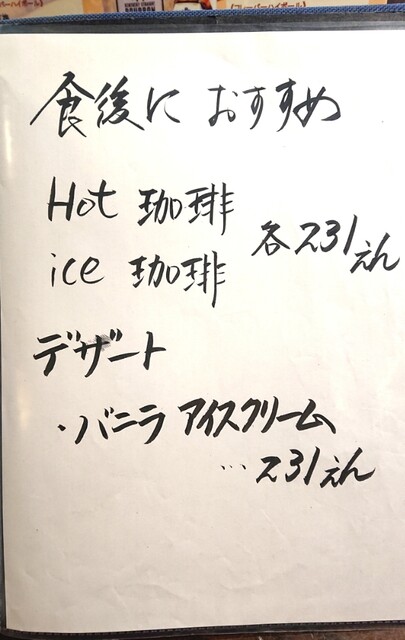 食後に おすすめ
Hot 珈琲
ice 珈琲
各231えん
デザート
・バニラ アイスクリーム
…231えん